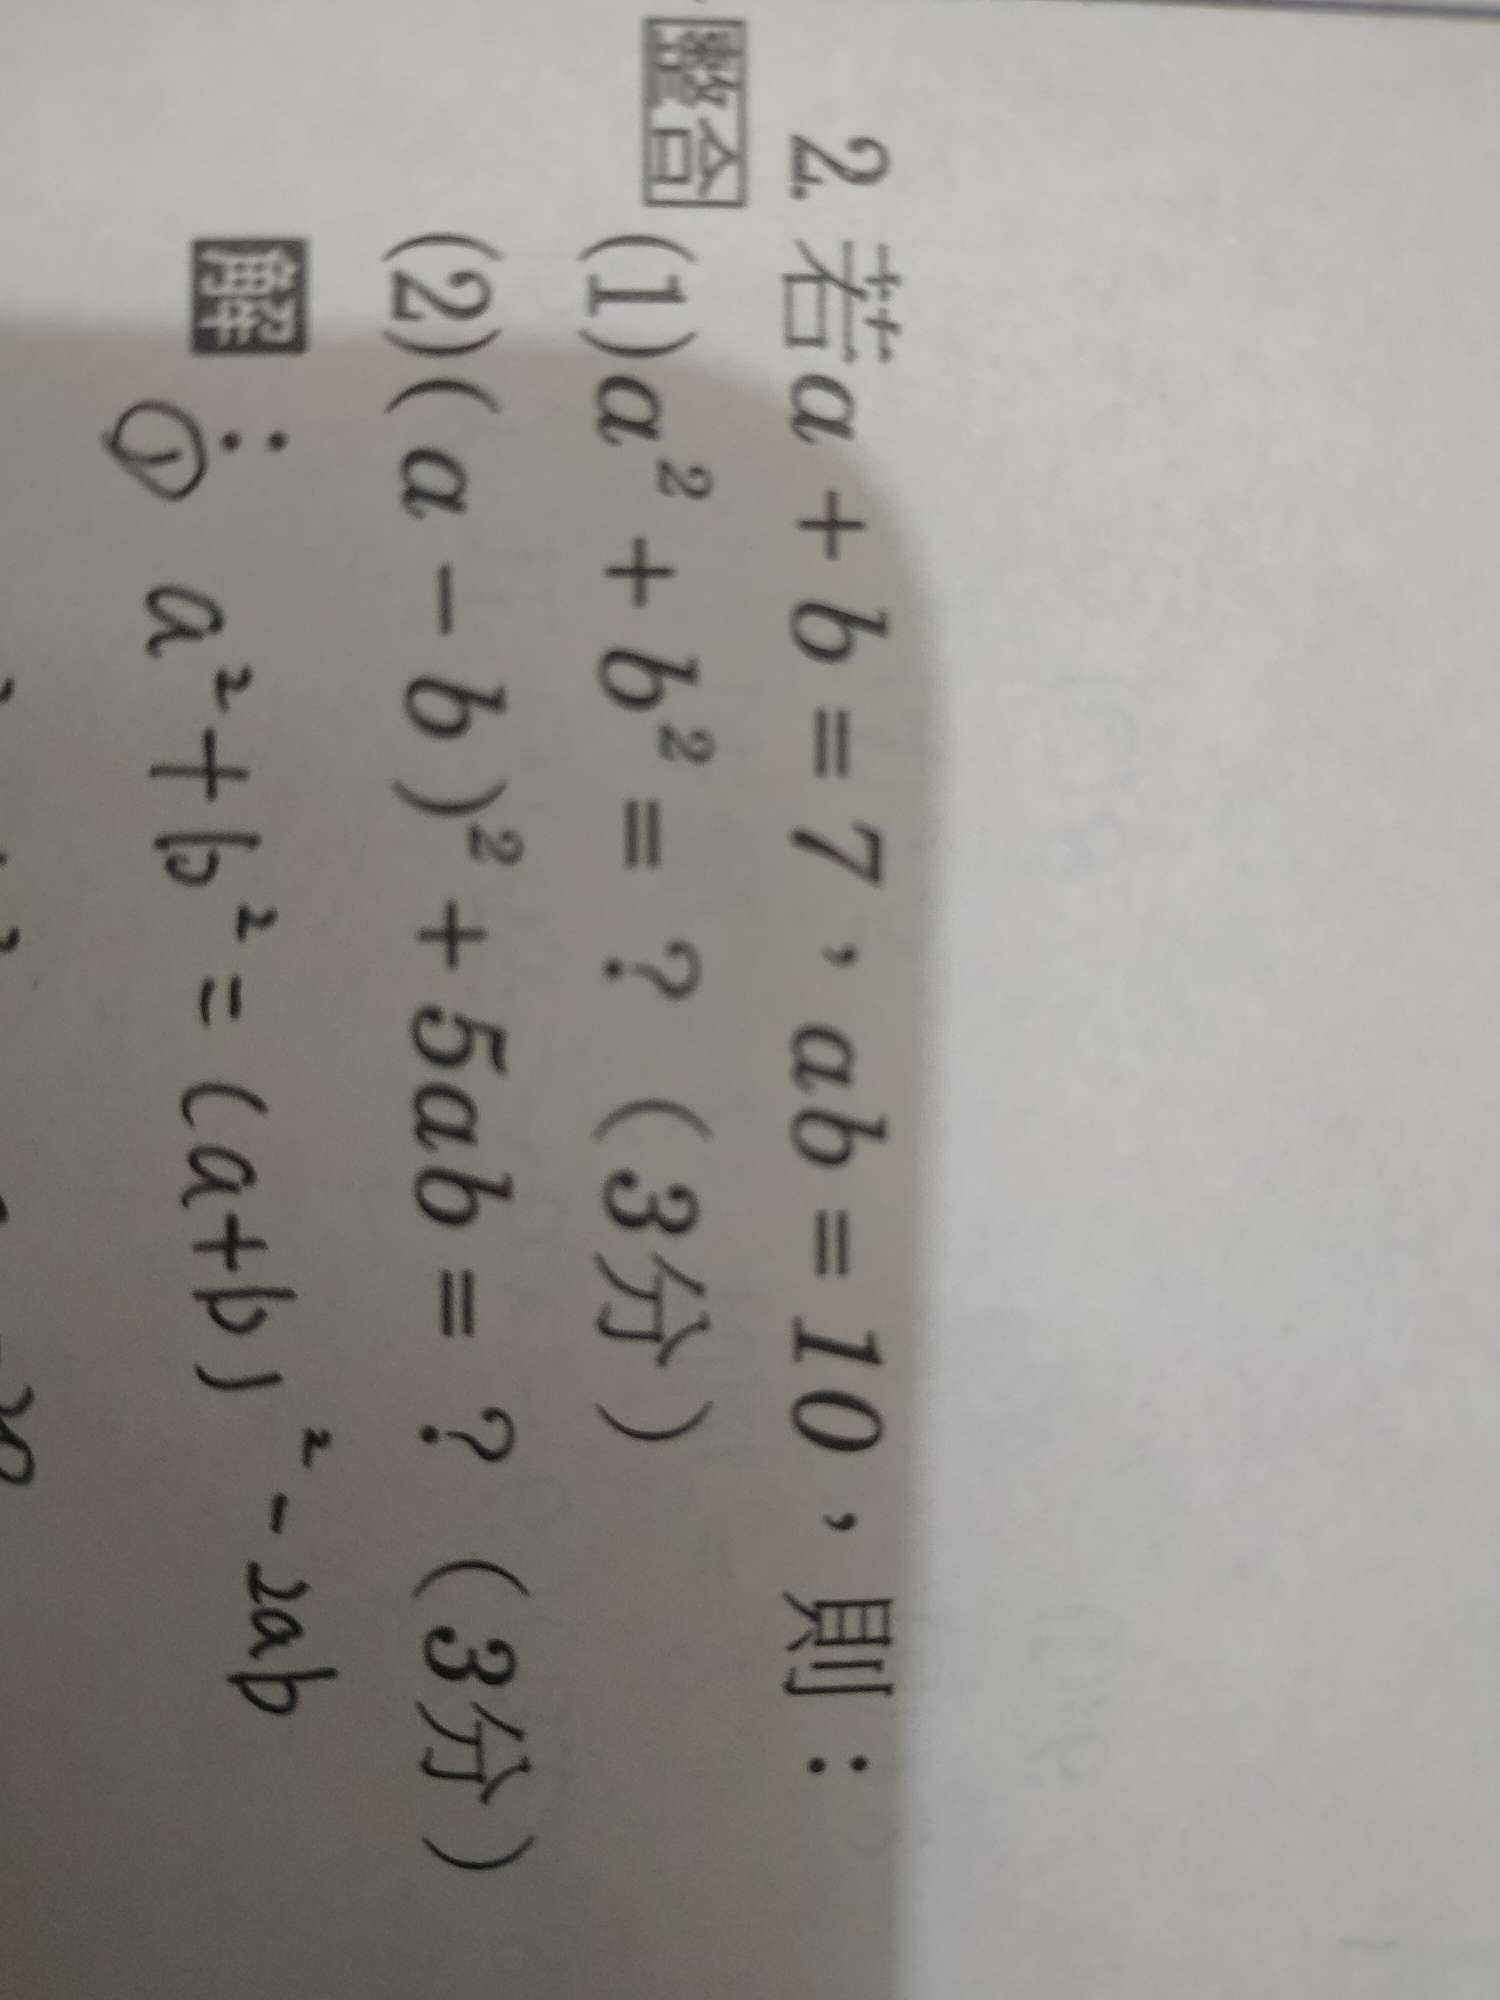 2. 若a + b = 7，ab = 10，則：
整合 (1)a² + b² = ？（3分）
(2)( a - b )² + 5ab = ？（3分）
解：
① a² + b² = (a+b)² - 2ab